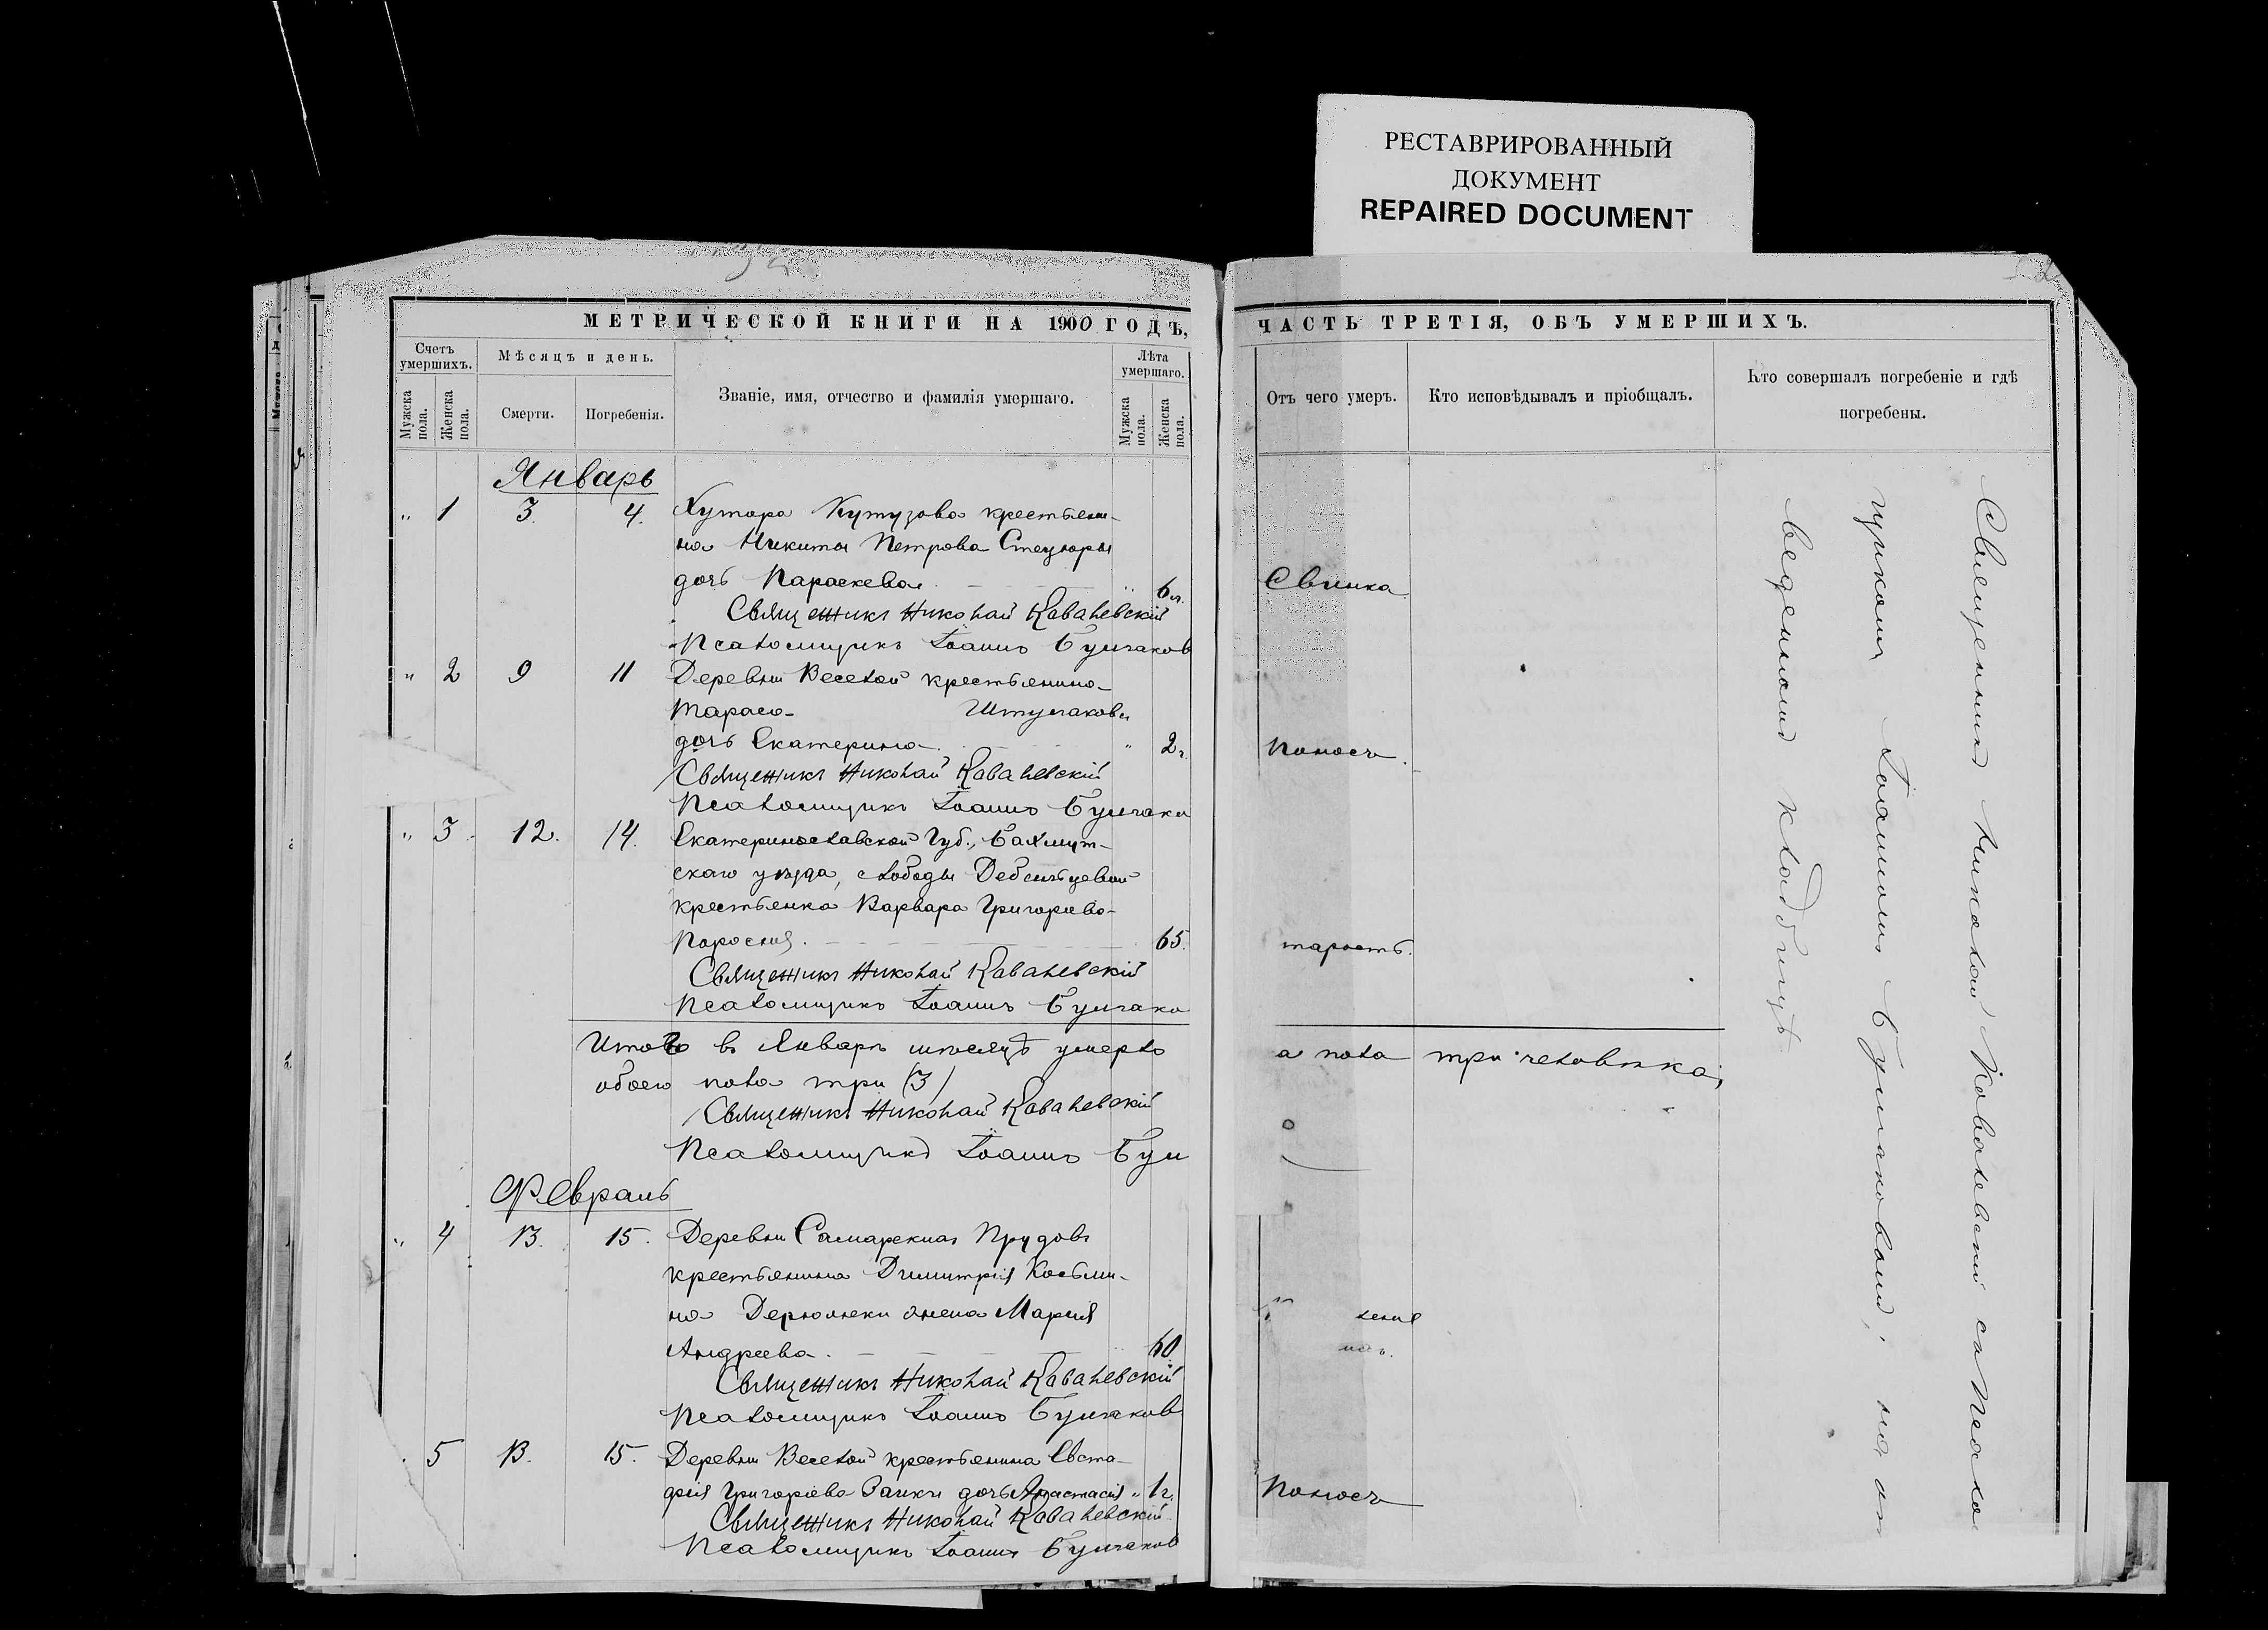 РЕСТАВРИРОВАННЫЙ
ДОКУМЕНТ
REPAIRED DOCUMENT
МЕТРИЧЕСКОЙ КНИГИ НА 1900 ГОДЪ,
Счетъ умершихъ.
Мужска пола.
Женска пола.
Мѣсяцъ и день.
Смерти.
Погребенія.
Званіе, имя, отчество и фамилія умершаго.
Лѣта умершаго.
Мужска пола.
Женска пола.
Январь
" 1 3. 4. Хутора Кутузова крестьяни-
на Никиты Петрова Стецюры
дочь Параскева. " 6 л.
Священникъ Николай Ковалевскій
Псаломщикъ Іоаннъ Булгаков
" 2 9 11 Деревни Веселой крестьянина
Тараса Штулакова
дочь Екатерина. " 2 г.
Священникъ Николай Ковалевскій
Псаломщикъ Іоаннъ Булгаков
" 3. 12. 14. Екатеринославской Губ., Бахмут-
скаго уѣзда, слободы
крестьянка Варвара Григорьева
65.
Священникъ Николай Ковалевскій
Псаломщикъ Іоаннъ Булгако
Итого въ Январѣ мѣсяцѣ умерло
обоего пола три (3)
Священникъ Николай Ковалевскій
Псаломщикъ Іоаннъ Бул
Февраль
" 4 13. 15. Деревни Самарскихъ Прудовъ
крестьянина Димитрія Косьми-
на жена Марія
Андреева. " 60
Священникъ Николай Ковалевскій
Псаломщикъ Іоаннъ Булгаков
5 13. 15. Деревни Веселой крестьянина Евста-
фія Григорьева Заики дочь Анастасія " 1 г.
Священникъ Николай Ковалевскій
Псаломщикъ Іоаннъ Булгаков
ЧАСТЬ ТРЕТІЯ, ОБЪ УМЕРШИХЪ.
Отъ чего умеръ.
Кто исповѣдывалъ и пріобщалъ.
Кто совершалъ погребеніе и гдѣ погребены.
Свинка
Поносъ.
тарость.
а пола три человѣка;
Поносъ
Священникъ Николай Ковалевскій съ Псало
мщикомъ Іоанномъ Булгаковымъ; на от
веденномъ кладбищѣ